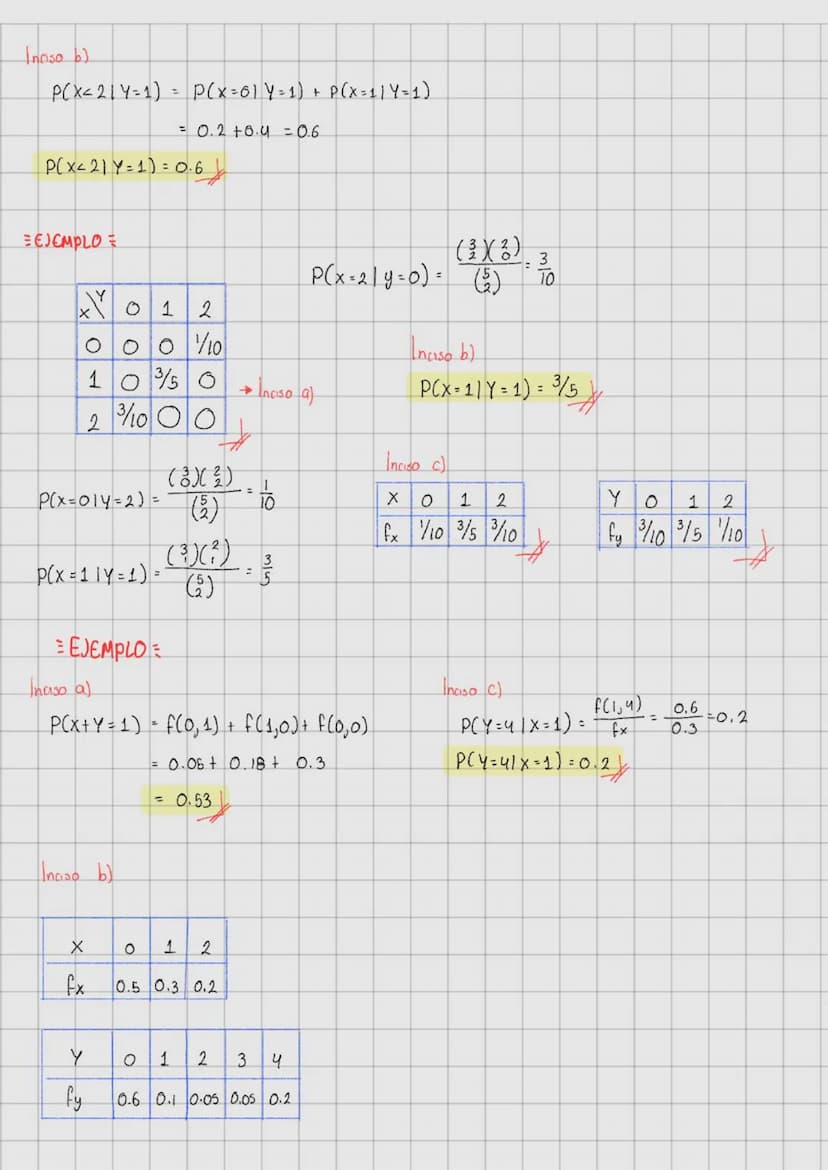 Inciso b)
P(X<2|Y=1) = P(X=0|Y=1) + P(X=1|Y=1)
= 0.2+0.4 = 0.6
P(X<2|Y=1) = 0.6
EJEMPLO
X\Y 0 1 2
0 0 0 1/10
1 0 3/5 0
2 3/10 0 0
→ Inciso a)
P(X=2|y=0) = (3 2)(2 0) / (5 2) = 3/10
Inciso b)
P(X=1|Y=1) = 3/5
P(X=0|Y=2) = (3 0)(2 2) / (5 2) = 1/10
P(X=1|Y=1) = (3 1)(2 1) / (5 2) = 3/5
Inciso c)
X 0 1 2
fx 1/10 3/5 3/10
Y 0 1 2
fy 3/10 3/5 1/10
EJEMPLO
Inciso a)
P(X+Y=1) = f(0,1) + f(1,0) + f(0,0)
= 0.05 + 0.18 + 0.3
= 0.53
Inciso c)
P(Y=4|X=1) = f(1,4)/fx = 0.6/0.3 = 0.2
P(Y=4|X=1) = 0.2
Inciso b)
X 0 1 2
fx 0.5 0.3 0.2
Y 0 1 2 3 4
fy 0.6 0.1 0.05 0.05 0.2